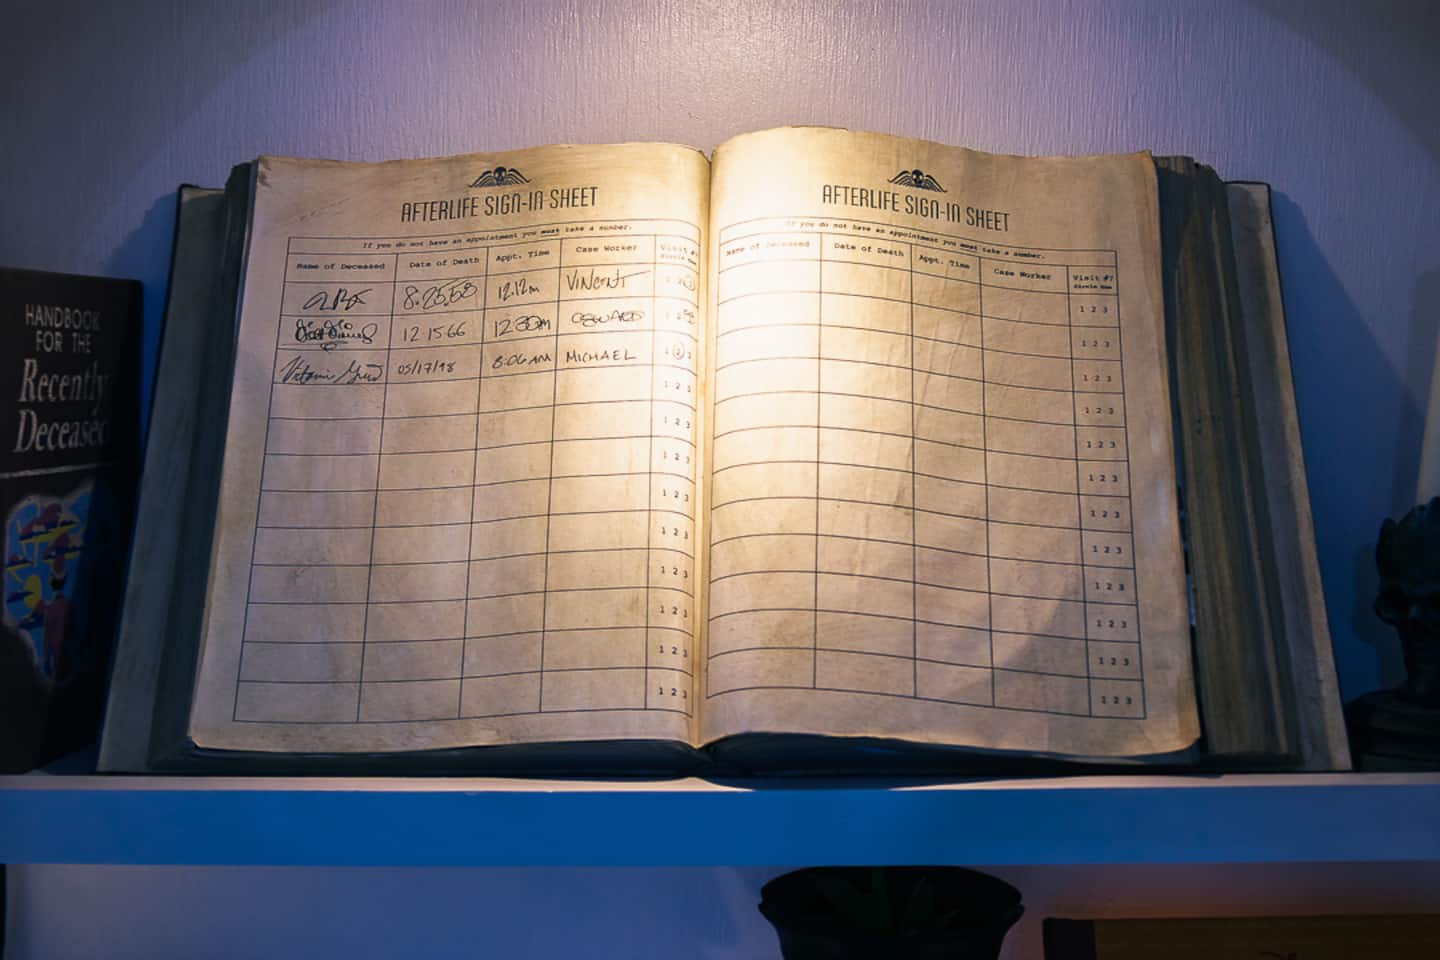 HANDBOOK
FOR THE
Recently
Deceased
AFTERLIFE SIGN-IN SHEET
If you do not have an appointment you must take a number.
Name of Deceased Date of Death Appt. Time Case Worker Visit #?
Circle One
8.25.58 12.12m VINCENT 1 2 3
12.15.66 12:30m OSWARD 1 2 3
05/17/98 8:06AM MICHAEL 1 2 3
1 2 3
1 2 3
1 2 3
1 2 3
1 2 3
1 2 3
1 2 3
1 2 3
1 2 3
AFTERLIFE SIGN-IN SHEET
If you do not have an appointment you must take a number.
Name of Deceased Date of Death Appt. Time Case Worker Visit #?
Circle One
1 2 3
1 2 3
1 2 3
1 2 3
1 2 3
1 2 3
1 2 3
1 2 3
1 2 3
1 2 3
1 2 3
1 2 3